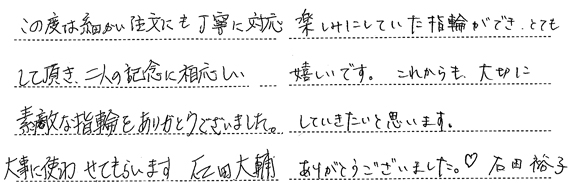 この度は細かい注文にも丁寧に対応
して頂き、二人の記念に相応しい
素敵な指輪をありがとうございました。
大事に使わせてもらいます 石田大輔
楽しみにしていた指輪ができ、とても
嬉しいです。これからも、大切に
していきたいと思います。
ありがとうございました。♡ 石田裕子